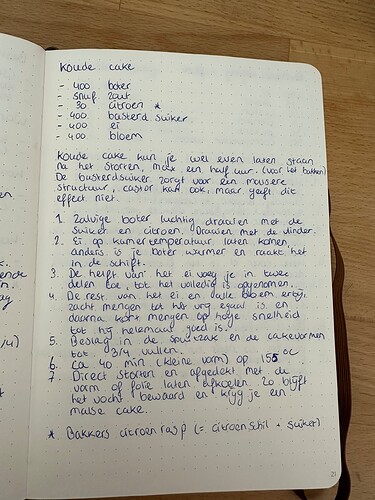 Koude cake
- 400 boter
- snuf zout
- 30 citroen *
- 400 basterd suiker
- 400 ei
- 400 bloem
Koude cake kun je wel even laten staan
na het storten, max een half uur. (voor het bakken)
De basterdsuiker zorgt voor een moussere
structuur, castor kan ook, maar geeft dit
effect niet.
1. Zalvige boter luchtig draaien met de
suiker en citroen. Draaien met de vlinder.
2. Ei op kamertemperatuur laten komen,
anders is je boter warmer en raakt het
in de schift.
3. De helft van het ei voeg je in twee
delen toe, tot het volledig is opgenomen.
4. De rest van het ei en alle bloem erbij,
zacht mengen tot het vrij egaal is en
daarna kort mengen op hoge snelheid
tot hij helemaal goed is.
5. Beslag in de spuitzak en de cakevormen
tot 3/4 vullen.
6. Ca 40 min (kleine vorm) op 155 °C
7. Direct storten en afgedekt met de
vorm of folie laten afkoelen. Zo blijft
het vocht bewaard en krijg je een
malse cake.
* Bakkers citroenrasp (= citroenschil + suiker)
/4)
21